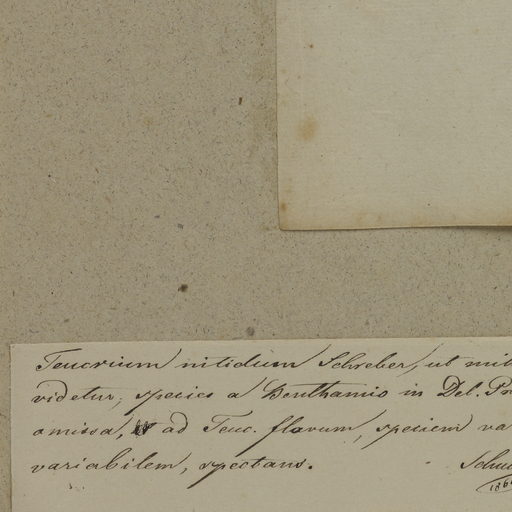 Teucrium nitidum Schreber, ut mih
videtur, species a Benthamio in Del. Pr
omissa, ad Teuc. flavum, speciem va
variabilem, spectans.